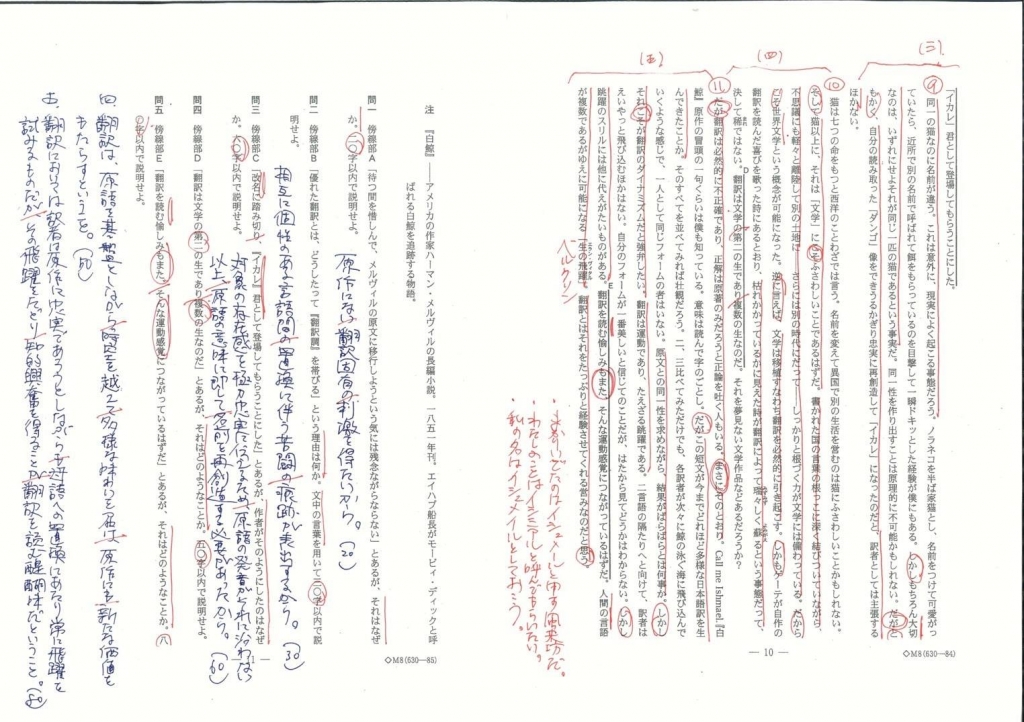 (三)
「イカレ」君として登場してもらうことにした。
⑨ 同一の猫なのに名前が違う。これは意外に、現実によく起こる事態だろう。ノラネコを半ば家猫とし、名前をつけて可愛がっ
ていたら、近所で別の名前で呼ばれて餌をもらっているのを目撃して一瞬ドキッとした経験が僕にもある。しかしもちろん大切
なのは、いずれにせよそれが同じ一匹の猫であるという事実だ。同一性を作り出すことは原理的に不可能かもしれない。だがと
もかく、自分の読み取った「ダンゴ」像をできうるかぎり忠実に再創造して「イカレ」になったのだと、訳者としては主張する
ほかない。
(四)
⑩ 猫は七つの命をもっと西洋のことわざでは言う。名前を変えて異国で別の生活を営むのは猫にふさわしいことかもしれない。
そして猫以上に、それは「文学」にこそふさわしいことであるはずだ。書かれた国の言葉の根っこに深く結びついていながら、
不思議にも軽々と離陸して別の土地に、さらには別の時代にだって――しっかりと根づく力が文学には備わっている。だから
こそ世界文学という概念が可能になった。逆に言えば、文学は移植すなわち翻訳を必然的に引き起こす。しかもゲーテが自作の
翻訳を読んだ喜びを歌った時にあるとおり、枯れかかっているかに見えた詩が翻訳によって瑞々しく蘇るという事態だって、
決して稀ではない。翻訳は文学の第二の生であり複数の生なのだ。それを夢見ない文学作品などあるだろうか?
D
(五)
⑪ だが翻訳は必然的に不正確であり、正解は原著のみだろうと正論を吐く人もいる。まさにそのとおり。Call me Ishmael.『白
鯨』原作の冒頭の一句くらいは僕も知っている。意味は読んで字のごとし。だがこの短文が今までどれほど多様な日本語訳を生
んできたことか。そのすべてを並べてみれば壮観だろう。二、三比べてみただけでも、各訳者が次々に鯨の泳ぐ海に飛び込んで
いくような感じで、一人として同じフォームの者はいない。原文との同一性を求めながら、結果がばらばらとは何事か。しかし
それこそが翻訳のダイナミズムだと強弁したい。翻訳は運動であり、たえざる跳躍である。二言語の隔たりへと向けて、訳者は
えいやっと飛び込むほかはない。自分のフォームが一番美しいと信じてのことだが、はたから見てどうかはわからない。しかし
跳躍のスリルには他に代えがたいものがある。翻訳を読む愉しみもまた、そんな運動感覚につながっているはずだ。人間の言語
E
が複数であるがゆえに可能になる「生の飛躍」。翻訳とはそれをたっぷりと経験させてくれる営みなのだと思う。
ベルクソン
・ここに出でたのはイシュメールと申す風来坊だ。
・わたしのことはイシュメールと呼んでもらいたい。
・私の名はイシュメイルとしておこう。
― 10 ―
◇M8(630―84)
注 『白鯨』――アメリカの作家ハーマン・メルヴィルの長編小説。一八五一年刊。エイハブ船長がモービィ・ディックと呼
ばれる白鯨を追跡する物語。
問一 傍線部A「待つ間を惜しんで、メルヴィルの原文に移行しようという気には残念ながらならない」とあるが、それはなぜ
か。二〇字以内で説明せよ。
原作にはない翻訳固有の刺激を得たいから。(20)
問二 傍線部B「優れた翻訳とは、どうしたって『翻訳調』を帯びる」という理由は何か。文中の言葉を用いて三〇字以内で説
明せよ。
相互に個性のある言語間の置換に伴う苦闘の痕跡が表出するから。(30)
問三 傍線部C「改名に踏み切り、『イカレ』君として登場してもらうことにした」とあるが、作者がそのようにしたのはなぜ
か。六〇字以内で説明せよ。
対象の存在感を極力忠実に伝えるため、原語の発音がそれに沿わない
以上、原語の意味に即して名前を再創造する必要があったから。(60)
問四 傍線部D「翻訳は文学の第二の生であり複数の生なのだ」とあるが、それはどのようなことか。五〇字以内で説明せよ。
問五 傍線部E「翻訳を読む愉しみもまた、そんな運動感覚につながっているはずだ」とあるが、それはどのようなことか。八
〇字以内で説明せよ。
四、翻訳は、原語を基盤としながら時空を越えて多様な味わいを生み、原作にも新たな価値を
もたらすということ。(50)
五、翻訳においては訳者は原作に忠実であろうとしながらも母語への置換にあたり常に飛躍を
試みるものだが、その飛躍をたどり知的興奮を得ることが翻訳を読む醍醐味だということ。(80)
◇M8(630―85)